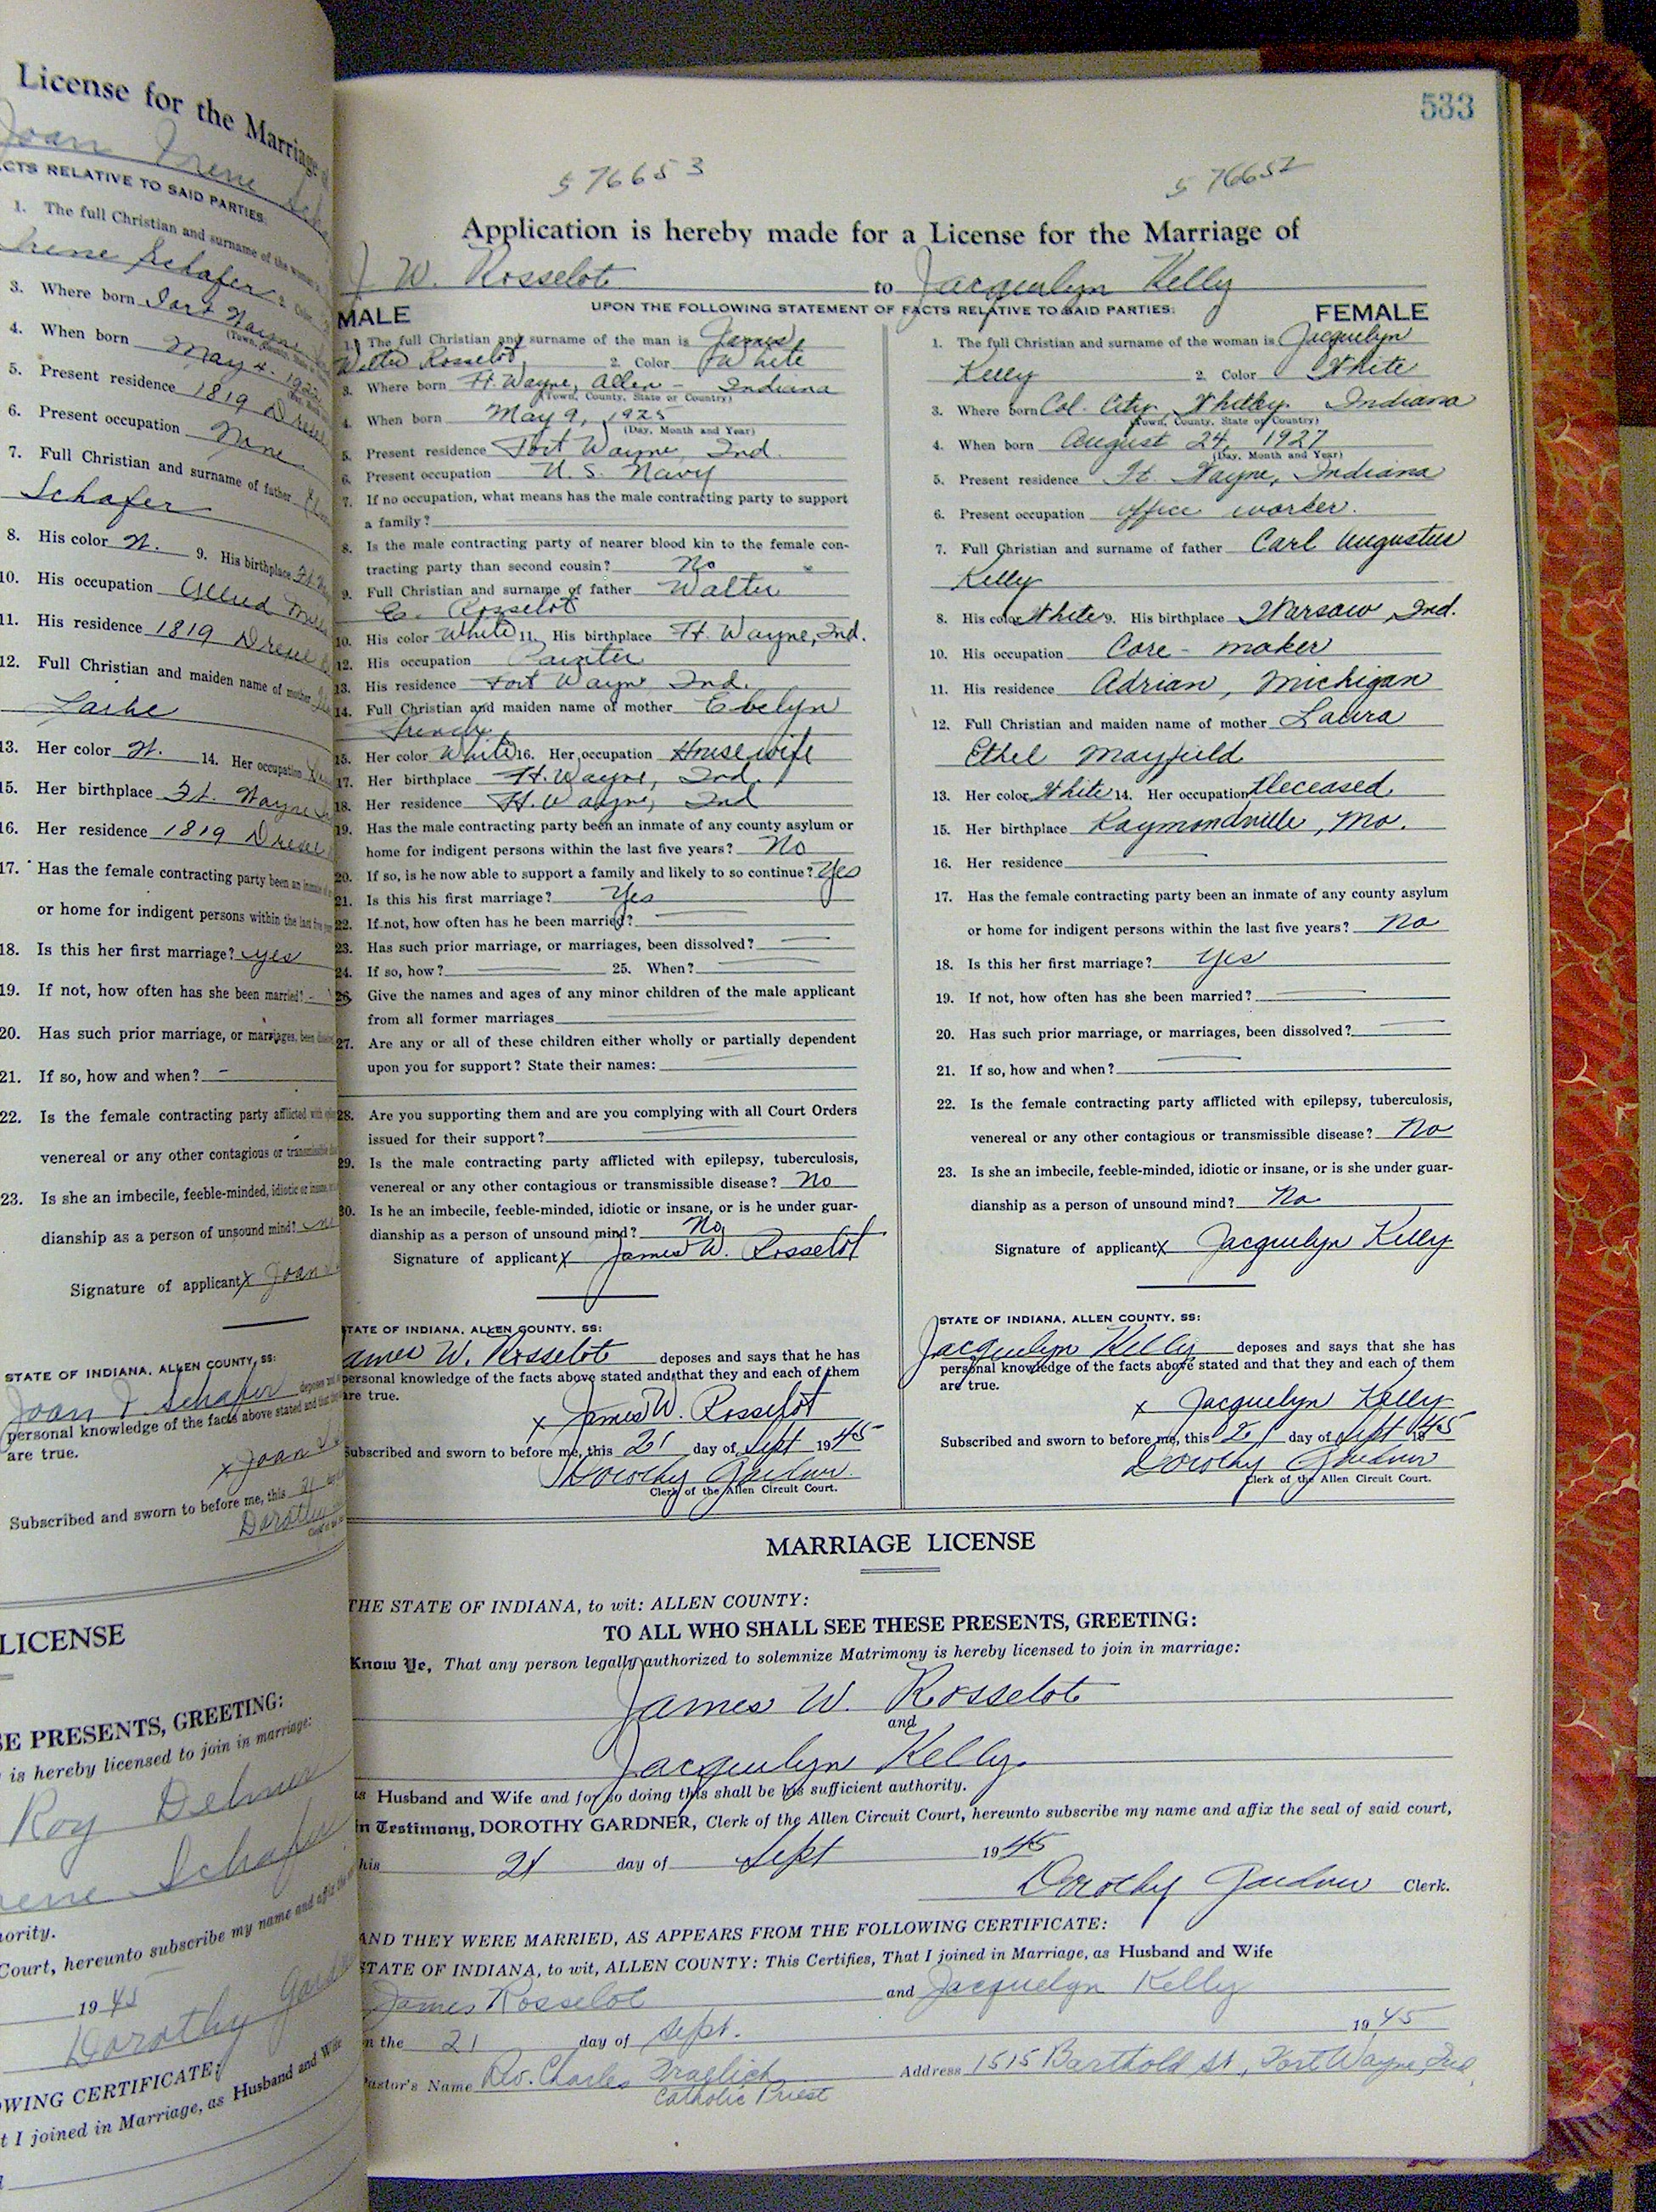 License for the Marriage
Joan Irene
ACTS RELATIVE TO SAID PARTIES:
1. The full Christian and surname of the
Irene Schafer 2. Color
3. Where born Fort Wayne
(Town, County, State
4. When born May 4, 192
5. Present residence 1819 Drexel
6. Present occupation None
7. Full Christian and surname of father
Schafer
8. His color W. 9. His birthplace Ft.
10. His occupation
11. His residence 1819 Drexel
12. Full Christian and maiden name of mother
13. Her color W. 14. Her occupation
15. Her birthplace Ft. Wayne
16. Her residence 1819 Drexel
17. Has the female contracting party been an inmate
or home for indigent persons within the last five
18. Is this her first marriage? yes
19. If not, how often has she been married? -
20. Has such prior marriage, or marriages, been
21. If so, how and when? -
22. Is the female contracting party afflicted with
venereal or any other contagious or transmissible
23. Is she an imbecile, feeble-minded, idiotic or insane,
dianship as a person of unsound mind?
Signature of applicant X Joan
STATE OF INDIANA, ALLEN COUNTY, SS:
Joan I. Schafer deposes
personal knowledge of the facts above stated and that
are true.
x Joan
Subscribed and sworn to before me, this 21
Dorothy
LICENSE
SE PRESENTS, GREETING:
is hereby licensed to join in marriage:
Roy Delmer
rene Schafer
hority.
Court, hereunto subscribe my name and affix the
19 45
Dorothy Gardner
OWING CERTIFICATE:
t I joined in Marriage, as Husband and Wife
533
576653 576652
Application is hereby made for a License for the Marriage of
J. W. Rosselot to Jacquelyn Kelly
UPON THE FOLLOWING STATEMENT OF FACTS RELATIVE TO SAID PARTIES:
MALE
1. The full Christian and surname of the man is James
Walter Rosselot 2. Color White
3. Where born Ft. Wayne, Allen - Indiana
(Town, County, State or Country)
4. When born May 9, 1925
(Day, Month and Year)
5. Present residence Fort Wayne, Ind.
6. Present occupation U. S. Navy
7. If no occupation, what means has the male contracting party to support
a family?
8. Is the male contracting party of nearer blood kin to the female con-
tracting party than second cousin? No
9. Full Christian and surname of father Walter
E. Rosselot
10. His color White 11. His birthplace Ft. Wayne, Ind.
12. His occupation Painter
13. His residence Fort Wayne, Ind.
14. Full Christian and maiden name of mother Evelyn
15. Her color White 16. Her occupation Housewife
17. Her birthplace Ft. Wayne, Ind.
18. Her residence Ft. Wayne, Ind
19. Has the male contracting party been an inmate of any county asylum or
home for indigent persons within the last five years? No
20. If so, is he now able to support a family and likely to so continue? Yes
21. Is this his first marriage? Yes
22. If not, how often has he been married?
23. Has such prior marriage, or marriages, been dissolved?
24. If so, how? 25. When?
26. Give the names and ages of any minor children of the male applicant
from all former marriages
27. Are any or all of these children either wholly or partially dependent
upon you for support? State their names:
28. Are you supporting them and are you complying with all Court Orders
issued for their support?
29. Is the male contracting party afflicted with epilepsy, tuberculosis,
venereal or any other contagious or transmissible disease? No
30. Is he an imbecile, feeble-minded, idiotic or insane, or is he under guar-
dianship as a person of unsound mind? No
Signature of applicant X James W. Rosselot
STATE OF INDIANA, ALLEN COUNTY, SS:
James W. Rosselot deposes and says that he has
personal knowledge of the facts above stated and that they and each of them
are true.
x James W. Rosselot
Subscribed and sworn to before me, this 21 day of Sept 1945
Dorothy Gardner
Clerk of the Allen Circuit Court.
FEMALE
1. The full Christian and surname of the woman is Jacquelyn
Kelly 2. Color White
3. Where born Col. City, Whitley Indiana
(Town, County, State or Country)
4. When born August 24, 1927
(Day, Month and Year)
5. Present residence Ft. Wayne, Indiana
6. Present occupation office worker.
7. Full Christian and surname of father Carl Augustus
Kelly
8. His color White 9. His birthplace Warsaw, Ind.
10. His occupation Core - maker
11. His residence Adrian, Michigan
12. Full Christian and maiden name of mother Laura
Ethel Mayfield
13. Her color White 14. Her occupation Deceased
15. Her birthplace Raymondville, Mo.
16. Her residence
17. Has the female contracting party been an inmate of any county asylum
or home for indigent persons within the last five years? No
18. Is this her first marriage? Yes
19. If not, how often has she been married?
20. Has such prior marriage, or marriages, been dissolved?
21. If so, how and when?
22. Is the female contracting party afflicted with epilepsy, tuberculosis,
venereal or any other contagious or transmissible disease? No
23. Is she an imbecile, feeble-minded, idiotic or insane, or is she under guar-
dianship as a person of unsound mind? No
Signature of applicant X Jacquelyn Kelly
STATE OF INDIANA, ALLEN COUNTY, SS:
Jacquelyn Kelly deposes and says that she has
personal knowledge of the facts above stated and that they and each of them
are true.
x Jacquelyn Kelly
Subscribed and sworn to before me, this 21 day of Sept 1945
Dorothy Gardner
Clerk of the Allen Circuit Court.
MARRIAGE LICENSE
THE STATE OF INDIANA, to wit: ALLEN COUNTY:
TO ALL WHO SHALL SEE THESE PRESENTS, GREETING:
Know Ye, That any person legally authorized to solemnize Matrimony is hereby licensed to join in marriage:
James W. Rosselot
and
Jacquelyn Kelly
as Husband and Wife and for so doing this shall be his sufficient authority.
In Testimony, DOROTHY GARDNER, Clerk of the Allen Circuit Court, hereunto subscribe my name and affix the seal of said court,
this 21 day of Sept 1945
Dorothy Gardner Clerk.
AND THEY WERE MARRIED, AS APPEARS FROM THE FOLLOWING CERTIFICATE:
STATE OF INDIANA, to wit, ALLEN COUNTY: This Certifies, That I joined in Marriage, as Husband and Wife
James Rosselot and Jacquelyn Kelly
on the 21 day of Sept. 1945
Pastor's Name Rev. Charles Address 1515 Barthold St., Fort Wayne, Ind.
Catholic Priest